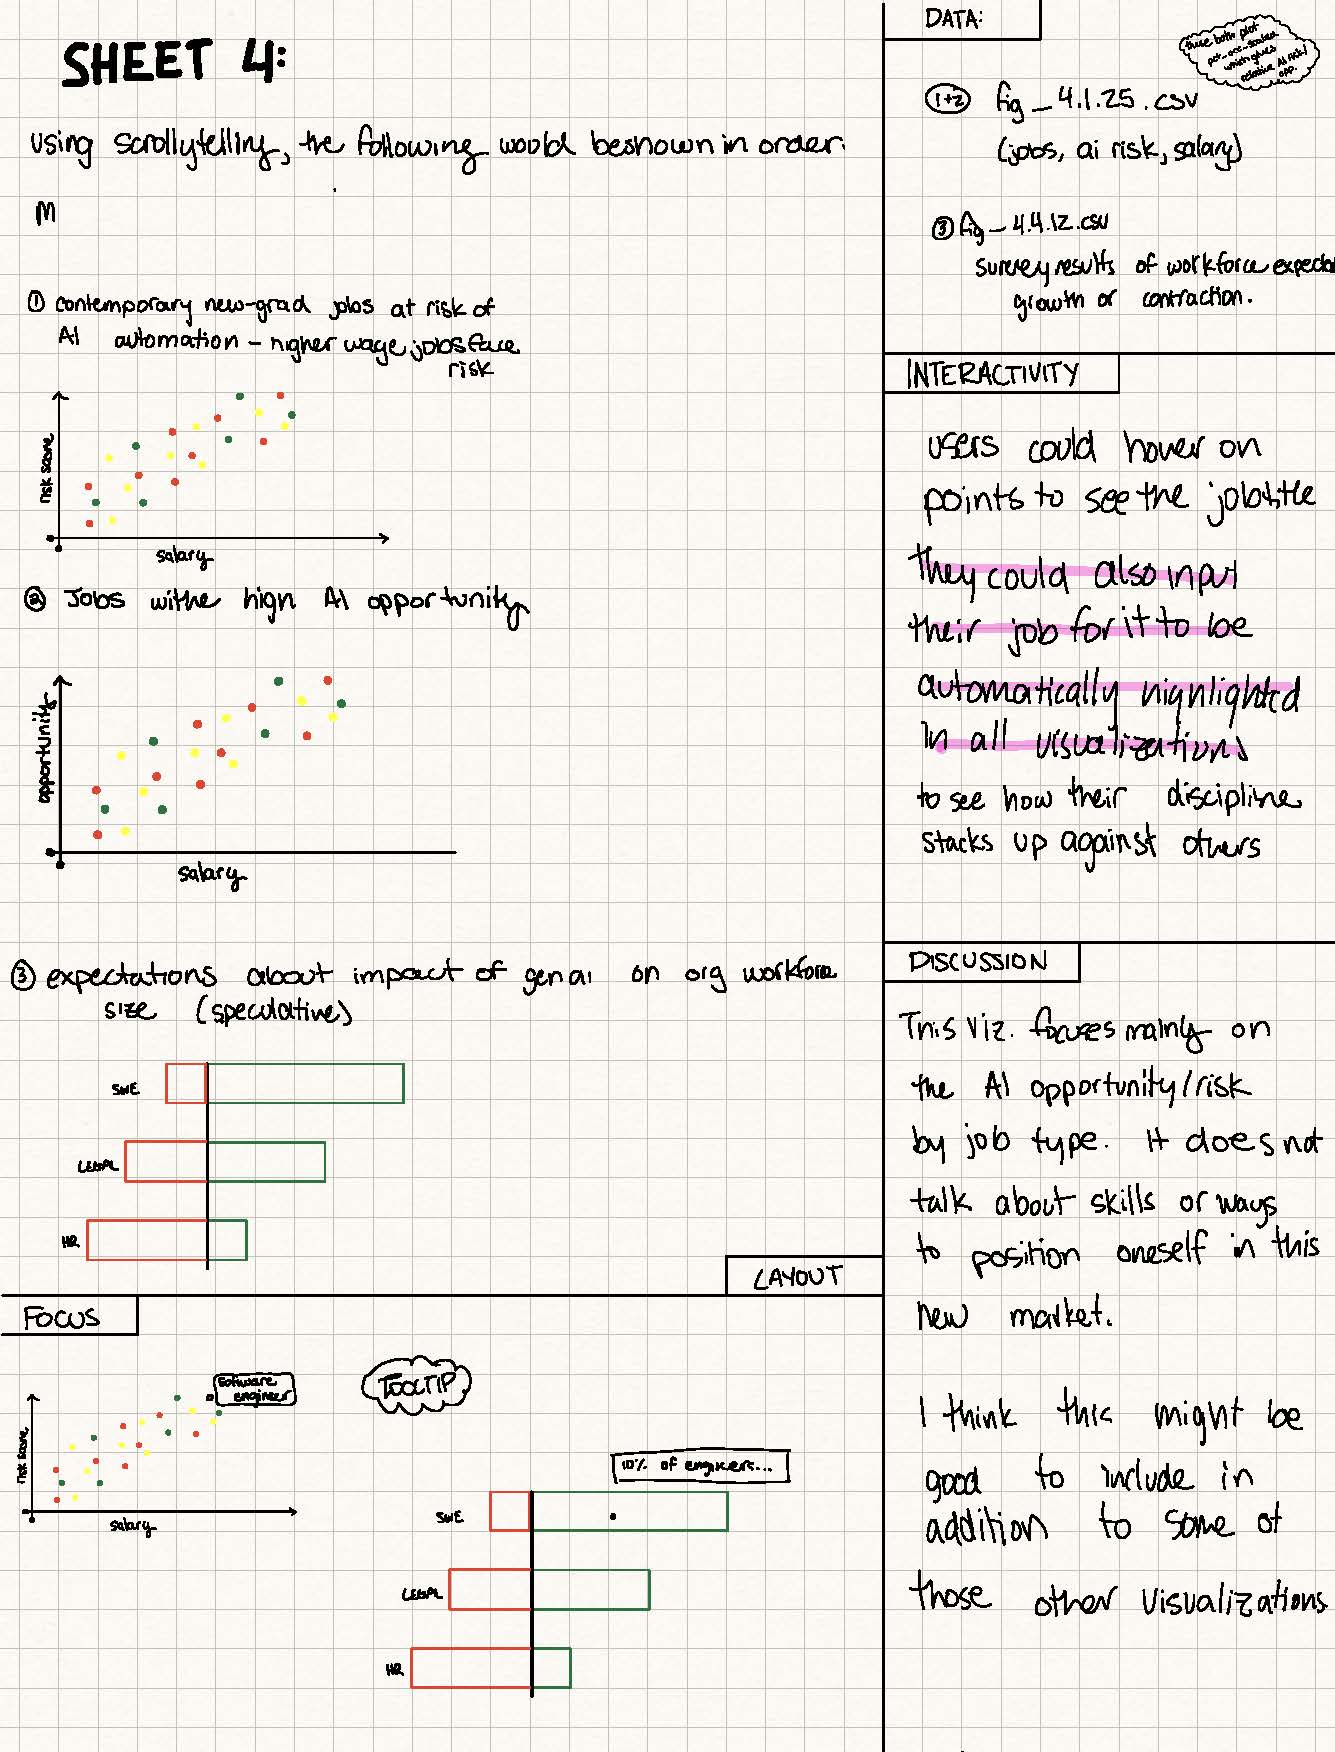 SHEET 4:
using scrollytelling, the following would be shown in order.
M
① contemporary new-grad jobs at risk of
AI automation – higher wage jobs face
risk
risk score
salary
② Jobs withe high AI opportunity
opportunity
salary
③ expectations about impact of genai on org workforce
size (speculative)
SWE
LEGAL
HR
LAYOUT
FOCUS
software
engineer
risk score
salary
TOOLTIP
10% of engineers...
SWE
LEGAL
HR
DATA:
these both plot
pct_occ_scaled
which gives
relative AI risk/
opp.
1+2 fig_4.1.25.csv
(jobs, ai risk, salary)
③ fig_4.4.12.csv
survey results of workforce expecta
growth or contraction.
INTERACTIVITY
users could hover on
points to see the job title
they could also input
their job for it to be
automatically highlighted
in all visualizations
to see how their discipline
stacks up against others
DISCUSSION
This viz. focuses mainly on
the AI opportunity/risk
by job type. It does not
talk about skills or ways
to position oneself in this
new market.
I think this might be
good to include in
addition to some of
those other visualizations